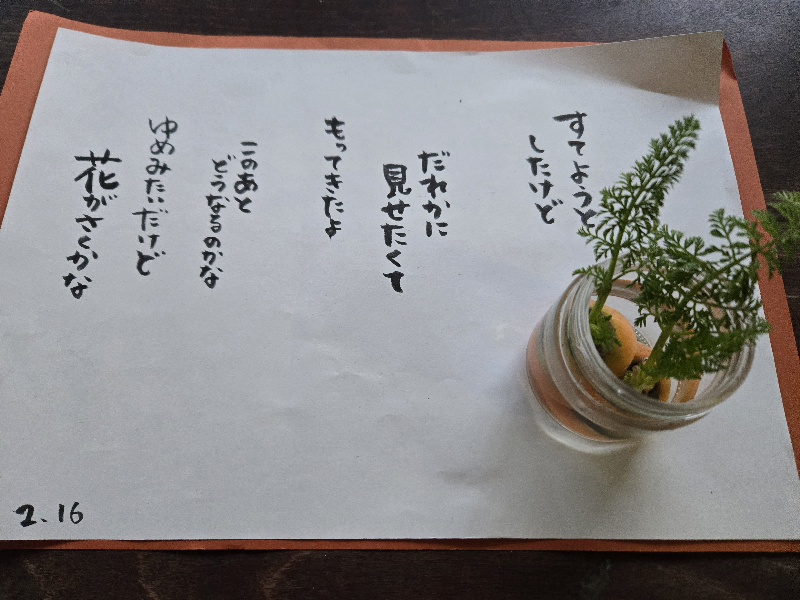 すてようと
したけど
だれかに
見せたくて
もってきたよ
このあと
どうなるのかな
ゆめみたいだけど
花がさくかな
2.16